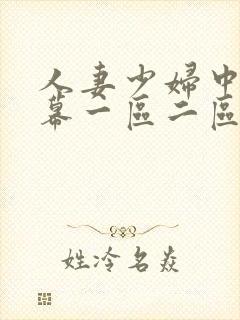 人妻少婦中
幕一區二區
姓冷名焱